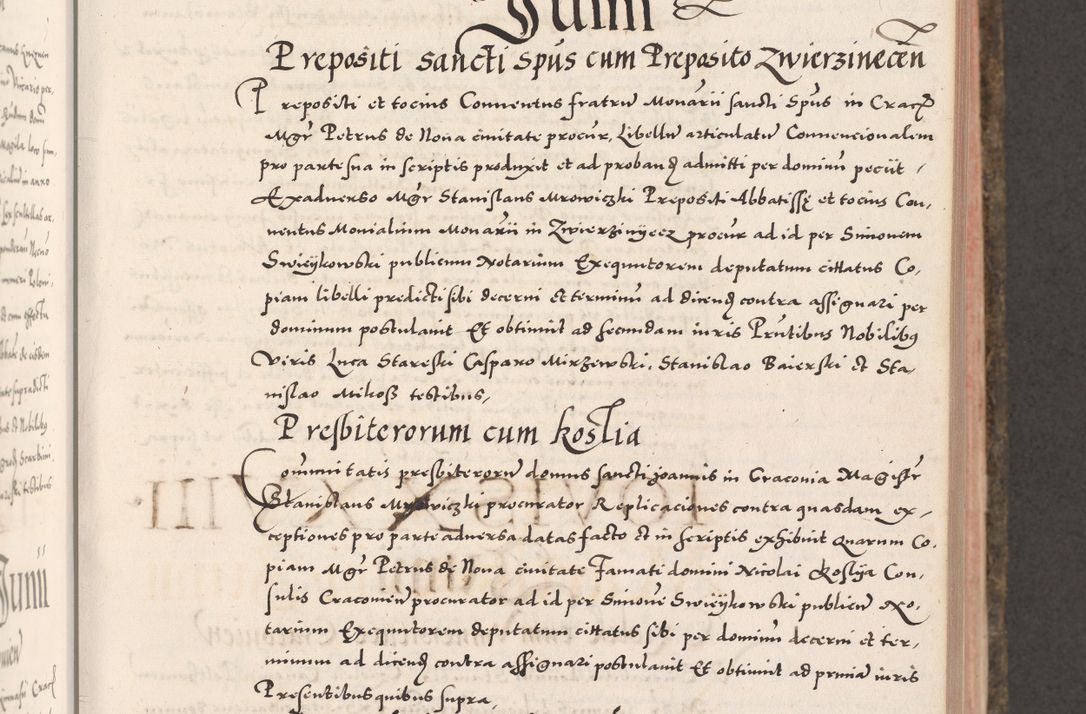 Junii
Prepositi sancti spus cum Preposito Zwierzinecen
Prepositi et tocius Conuentus fratru Monarii sancti Spus in Crac
Mgr Petrus de Noua ciuitate procur, Libellu articulatu Conuencionalem
pro parte sua in scriptis produxit et ad proband admitti per dominu peciit
Exaduerso Mgr Stanislaus Mrowiczki Prepositi Abbatissę et tocius Con,
uentus Monialium Monarii in Zwierzinyecz procur ad id per Simonem
Swieykowski publicum Notarium Exequutorem deputatum cittatus Co,
piam libelli predicti sibi decerni et terminu ad dicend contra assignari per
dominum postulauit Et obtinuit ad secundam iuris Pntibus Nobilibus
Viris Luca Stareski Casparo Mirzewski, Stanislao Baierski et Sta,
nislao Mikosz testibus,
Presbiterorum cum Koslia
Comunitatis presbiteroru domus sancti joannis in Craconia Magistr
Stanislaus Mrowiczki procurator Replicaciones contra quasdam ex,
ceptiones pro parte aduersa datas facto et in scriptis exhibuit Quarum Co,
piam Mgr Petrus de Noua ciuitate Famati domini Nicolai Koslija Con,
sulis Cracouien procurator ad id per Simone Swieykowski publicu No,
tarium Exequutorem deputatum cittatus sibi per dominu decerni et ter,
minum ad dicend contra assignari postulauit Et obtinuit ad primam iuris
Presentibus quibus supra,